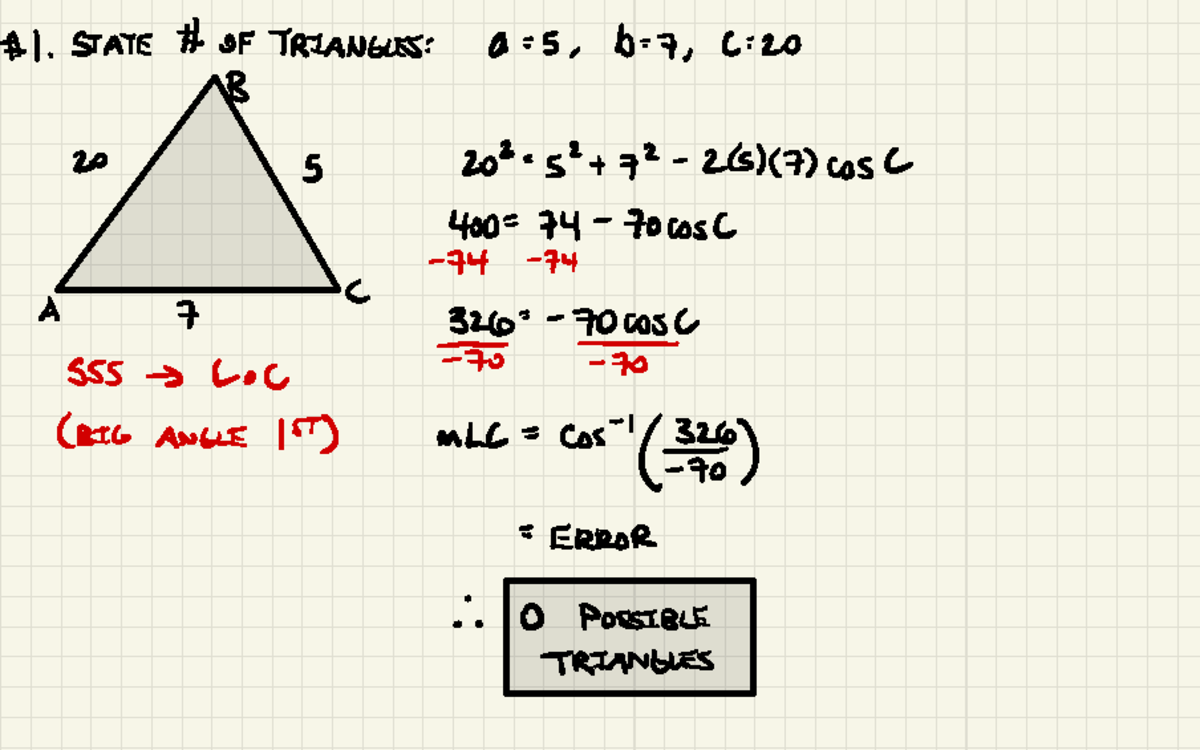 #1. STATE # OF TRIANGLES: a = 5, b = 7, c = 20
B
20
5
A
7
C
SSS → LoC
(BIG ANGLE 1ST)
20² = 5² + 7² - 2(5)(7) cos C
400 = 74 - 70 cos C
-74 -74
326 = -70 cos C
-70 -70
m∠C = cos⁻¹(326/-70)
= ERROR
∴ 0 POSSIBLE
TRIANGLES